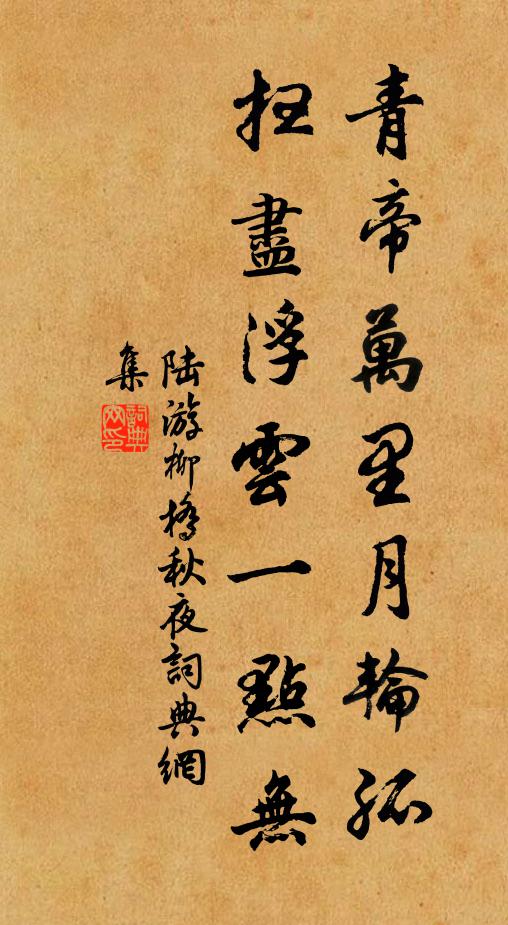 青帝萬里月輪孤
扫盡浮雲一點無
陆游柳橋秋夜詞典網
集
詞典
网印